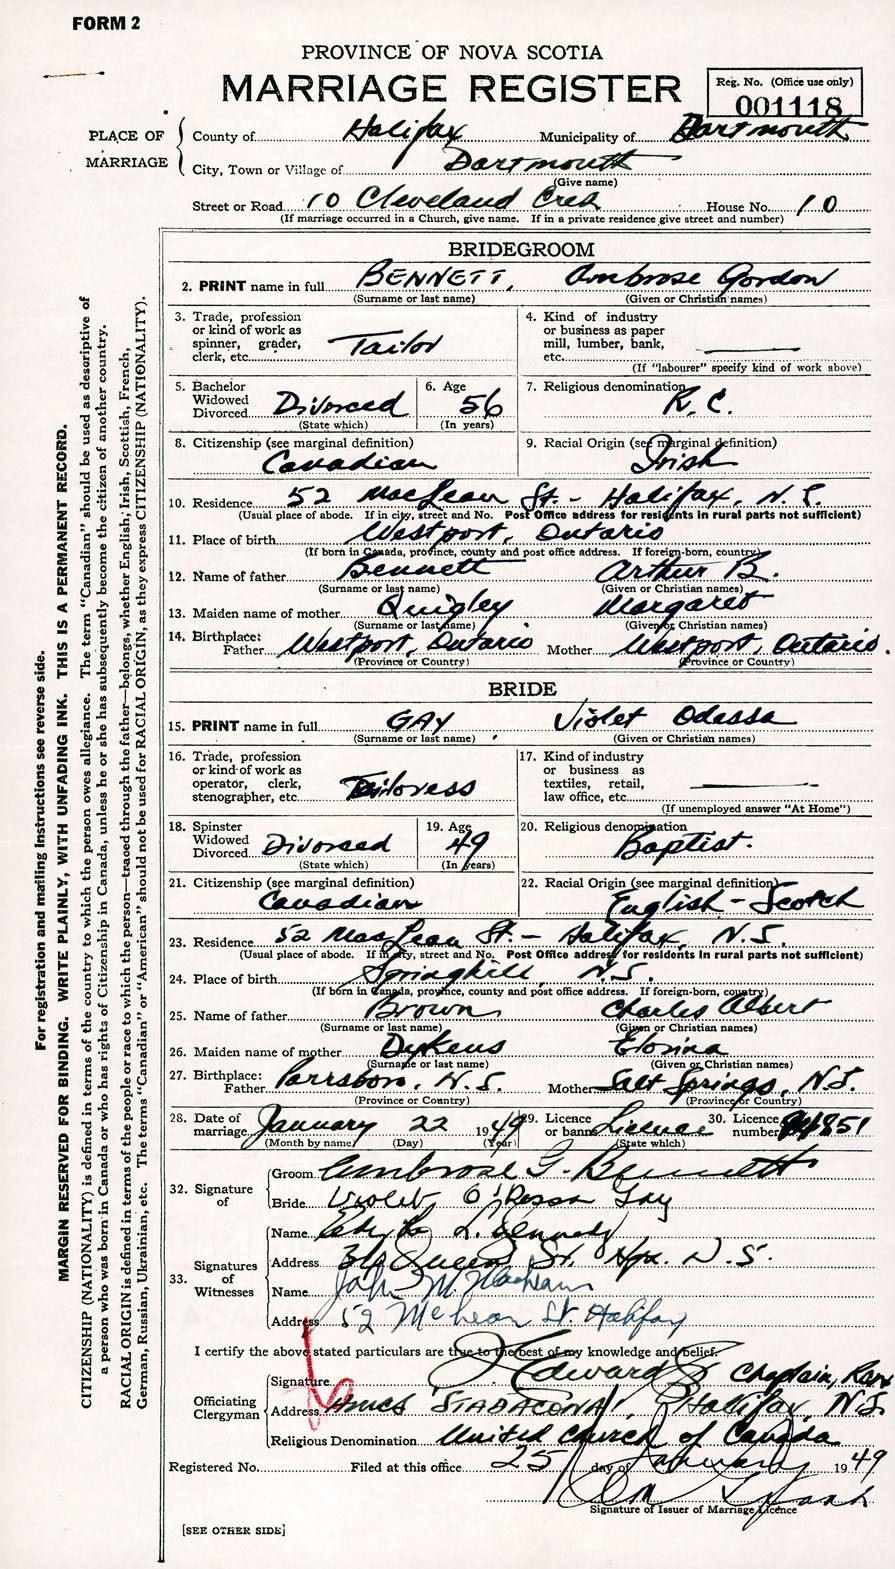 FORM 2
PROVINCE OF NOVA SCOTIA
MARRIAGE REGISTER
Reg. No. (Office use only)
001118
PLACE OF MARRIAGE
County of Halifax Municipality of Dartmouth
City, Town or Village of Dartmouth
(Give name)
Street or Road 10 Cleveland Cres House No. 10
(If marriage occurred in a Church, give name. If in a private residence give street and number)
BRIDEGROOM
2. PRINT name in full BENNETT, Ambrose Gordon
(Surname or last name) (Given or Christian names)
3. Trade, profession or kind of work as spinner, grader, clerk, etc. Tailor
4. Kind of industry or business as paper mill, lumber, bank, etc. —
(If "labourer" specify kind of work above)
5. Bachelor Widowed Divorced Divorced
(State which)
6. Age 56
(In years)
7. Religious denomination R.C.
8. Citizenship (see marginal definition)
Canadian
9. Racial Origin (see marginal definition)
Irish
10. Residence 52 MacLean St. - Halifax, N.S.
(Usual place of abode. If in city, street and No. Post Office address for residents in rural parts not sufficient)
11. Place of birth Westport, Ontario
(If born in Canada, province, county and post office address. If foreign-born, country)
12. Name of father Bennett Arthur B.
(Surname or last name) (Given or Christian names)
13. Maiden name of mother Quigley Margaret
(Surname or last name) (Given or Christian names)
14. Birthplace: Father Westport, Ontario Mother Westport, Ontario.
(Province or Country) (Province or Country)
BRIDE
15. PRINT name in full GAY, Violet Odessa
(Surname or last name) (Given or Christian names)
16. Trade, profession or kind of work as operator, clerk, stenographer, etc. Tailoress
17. Kind of industry or business as textiles, retail, law office, etc. —
(If unemployed answer "At Home")
18. Spinster Widowed Divorced Divorced
(State which)
19. Age 49
(In years)
20. Religious denomination Baptist.
21. Citizenship (see marginal definition)
Canadian
22. Racial Origin (see marginal definition)
English - Scotch
23. Residence 52 MacLean St. - Halifax, N.S.
(Usual place of abode. If in city, street and No. Post Office address for residents in rural parts not sufficient)
24. Place of birth Springhill, N.S.
(If born in Canada, province, county and post office address. If foreign-born, country)
25. Name of father Brown Charles Albert
(Surname or last name) (Given or Christian names)
26. Maiden name of mother Dykens Elorina
(Surname or last name) (Given or Christian names)
27. Birthplace: Father Parrsboro, N.S. Mother Salt Springs, N.S.
(Province or Country) (Province or Country)
28. Date of marriage January 22 1949 29. Licence or banns Licence 30. Licence number
(Month by name) (Day) (Year) (State which)
32. Signature of
Groom Ambrose G. Bennett
Bride Violet O'Dessa Gay
33. Signatures of Witnesses
Name L. Kennedy
Address Queen St. Hfx. N.S.
Name John M.
Address 52 McLean St. Halifax
I certify the above stated particulars are true to the best of my knowledge and belief.
Officiating Clergyman
Signature Chaplain,
Address HMCS "STADACONA", Halifax, N.S.
Religious Denomination United Church of Canada
Registered No. Filed at this office 25 day of January 1949
Signature of Issuer of Marriage Licence
[SEE OTHER SIDE]
For registration and mailing instructions see reverse side.
MARGIN RESERVED FOR BINDING. WRITE PLAINLY, WITH UNFADING INK. THIS IS A PERMANENT RECORD.
CITIZENSHIP (NATIONALITY) is defined in terms of the country to which the person owes allegiance. The term "Canadian" should be used as descriptive of
a person who was born in Canada or who has rights of Citizenship in Canada, unless he or she has subsequently become the citizen of another country.
RACIAL ORIGIN is defined in terms of the people or race to which the person—traced through the father—belongs, whether English, Irish, Scottish, French,
German, Russian, Ukrainian, etc. The terms "Canadian" or "American" should not be used for RACIAL ORIGIN, as they express CITIZENSHIP (NATIONALITY).